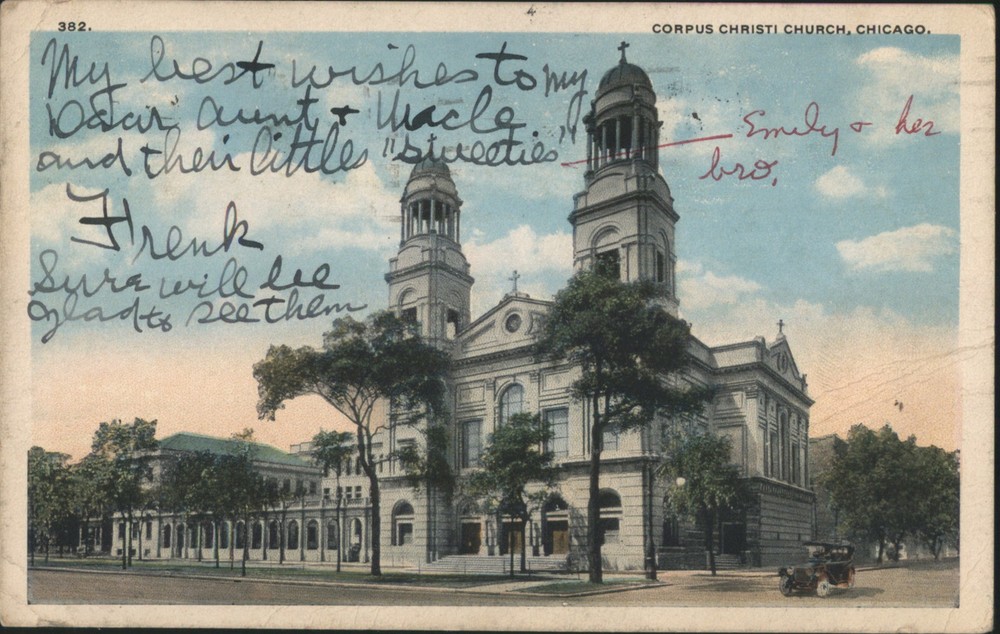 382.
CORPUS CHRISTI CHURCH, CHICAGO.
My best wishes to my
Dear Aunt + Uncle
and their littles "sweeties."
Emily + her
bro,
Frenk
Sure will be
glad to see them